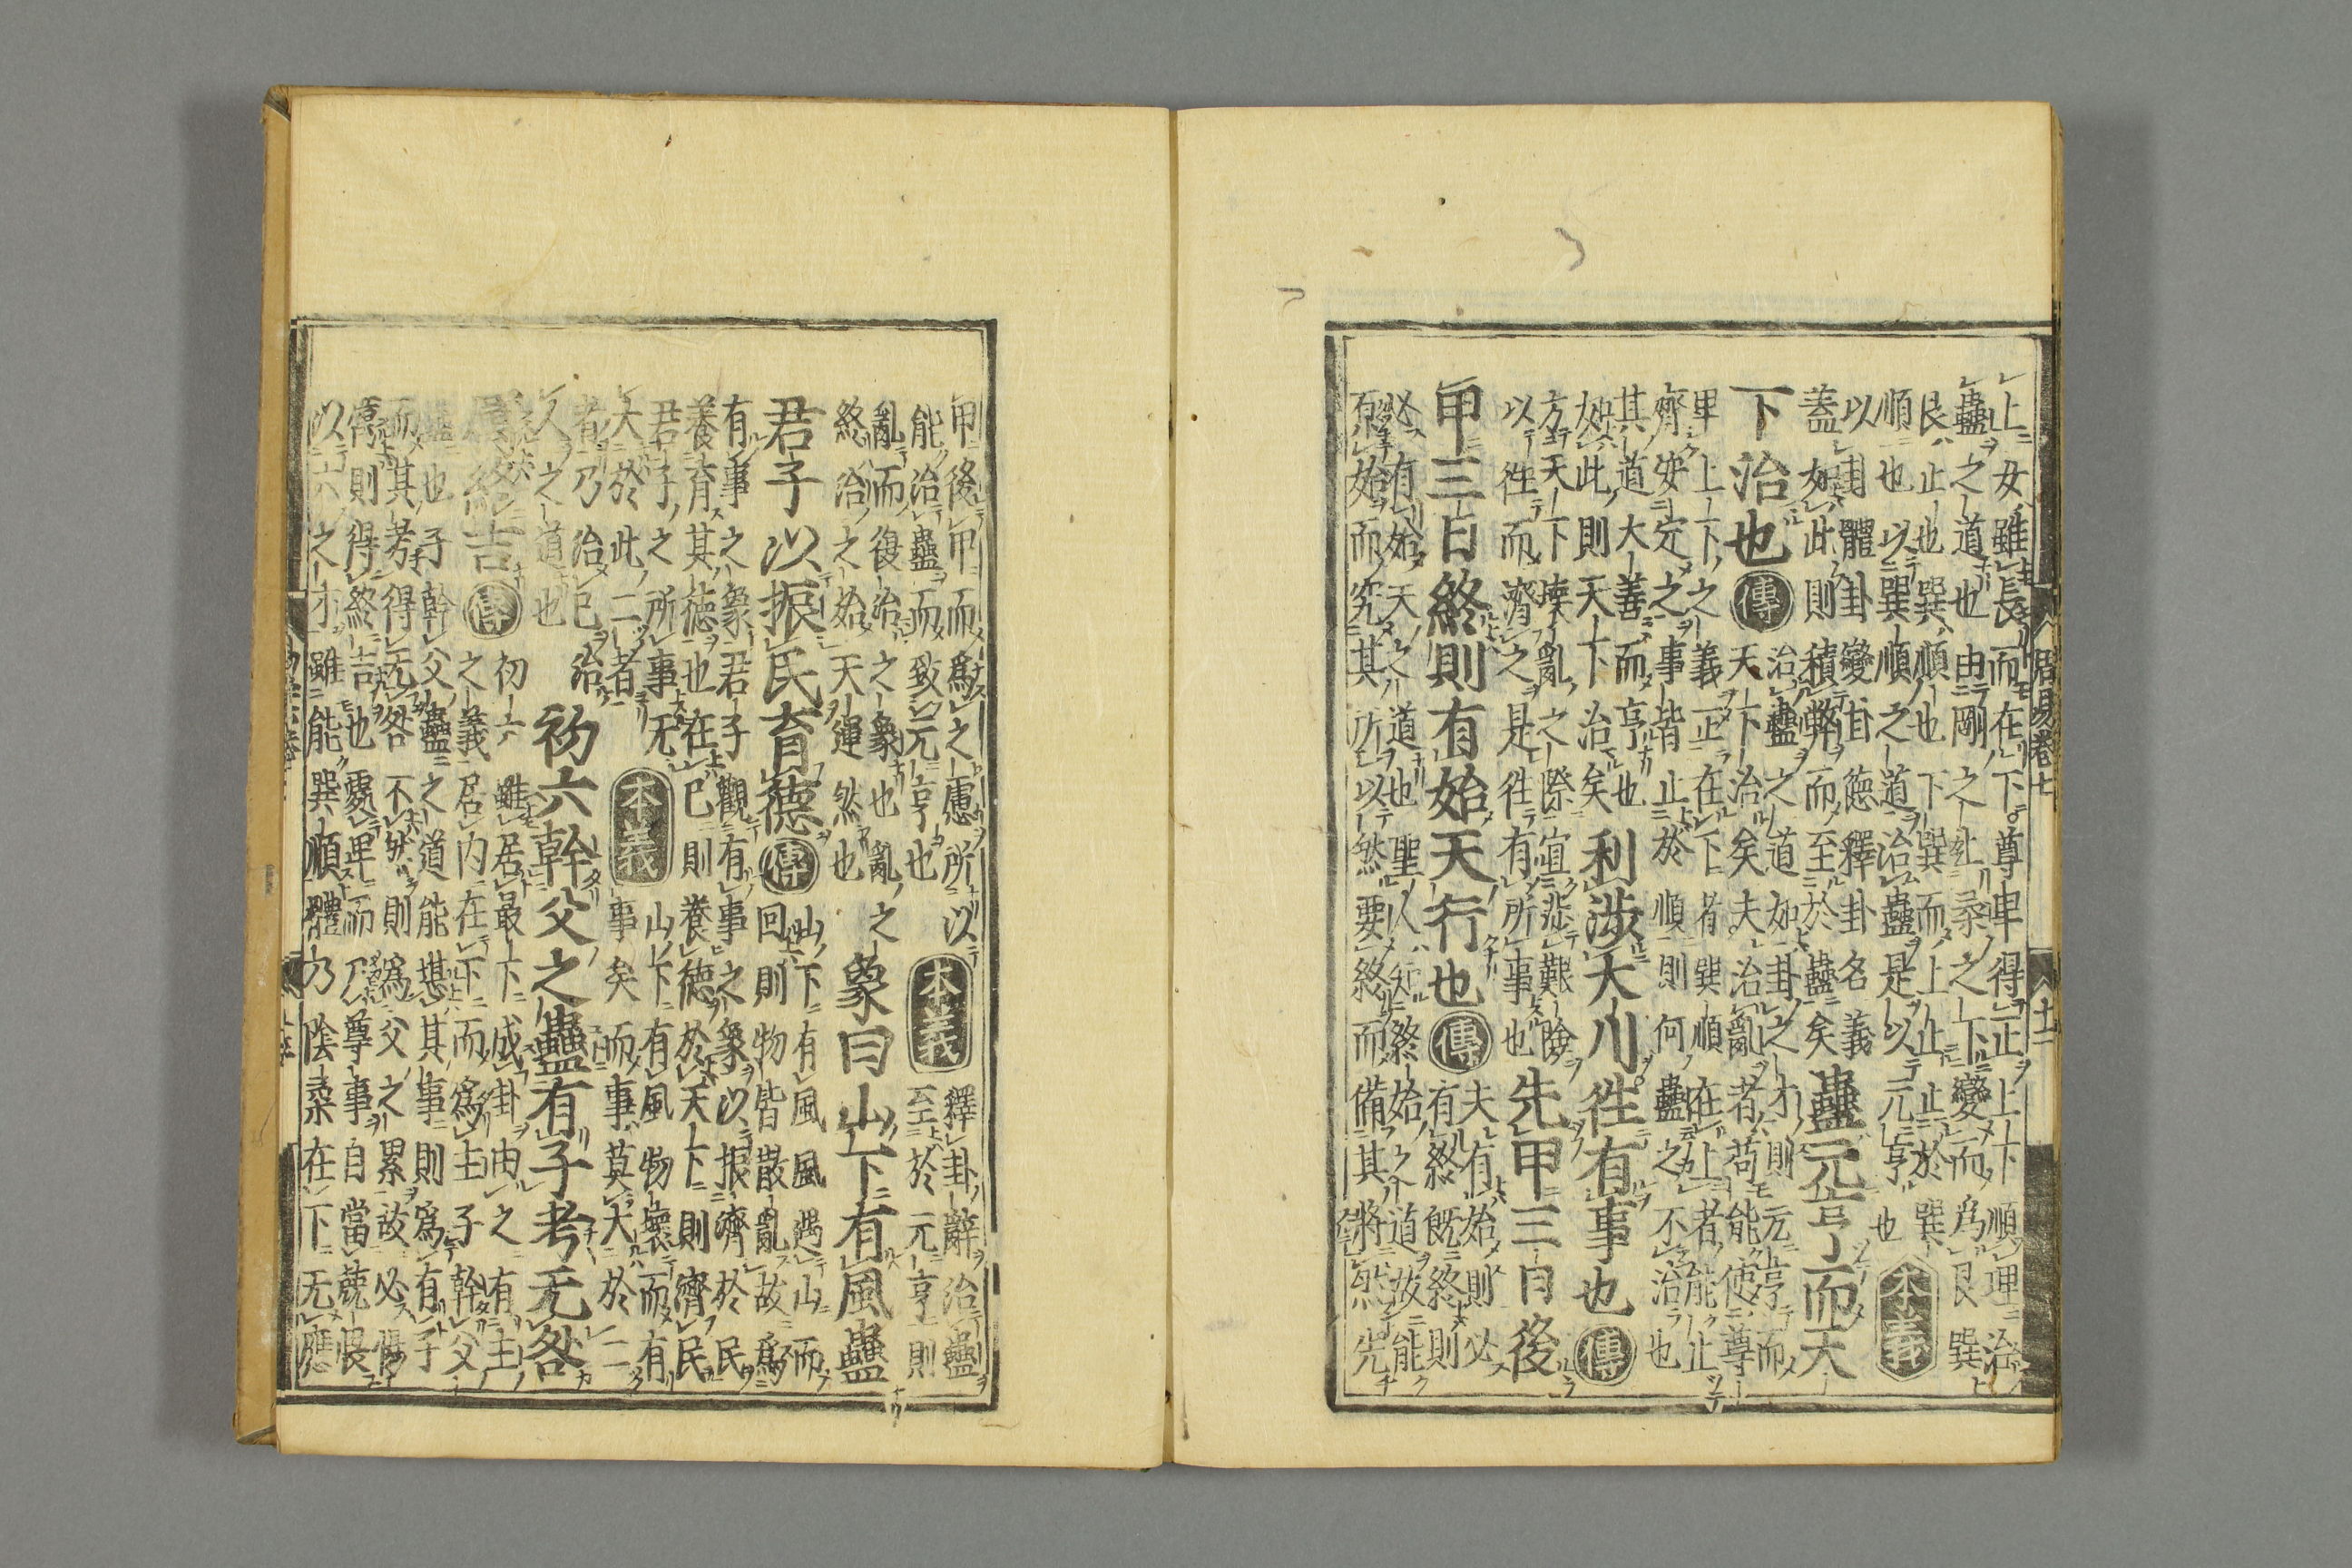 上女雖長而在下尊卑得正上下順理治
蠱之道也由剛之上柔之下變而爲艮巽
艮止也巽順也下巽而上止止於巽
順也以巽順之道治蠱是以元亨也本義
以卦體卦變卦德釋卦名義
蓋如此則積弊而至於蠱矣蠱元亨而天
治蠱之道如卦之才則元亨而
下治也傳天下治矣夫治亂者苟能使尊
卑上下之義正在下者巽順在上者能止
齊安定之事皆止於順則何蠱之不治也
其道大善而亨也
如此則天下治矣利涉大川往有事也傳
方天下壊亂之際宜涉艱險
以往而濟之是往有所事也先甲三日後
夫有始則必
甲三日終則有始天行也傳有終既終則
必有始天之道也聖人知終始之道故能
原始而究其所以然要終而備其將然先
周易卷七
十二
甲後甲而爲之慮所以
能治蠱而致元亨也本義釋卦辭治蠱
至於元亨則
亂而復治之象也亂之
終治之始天運然也象曰山下有風蠱
山下有風風遇山而
君子以振民育德傳回則物皆散亂故爲
有事之象君子觀有事之象以振濟於民
養育其德也在己則養德於天下則濟民
君子之所事无
大於此二者本義山下有風物壊而有
事矣而事莫大於二
者乃治己治
人之道也初六幹父之蠱有子考无咎
厲終吉傳初六雖居最下成卦由之有主
之義居內在下而爲主子幹父
蠱也子幹父蠱之道能堪其事則爲有子
而其考得无咎不然則爲父之累故必惕
厲則得終吉也處卑而尸尊事自當兢畏
以六之才雖能巽順體乃陰柔在下无應